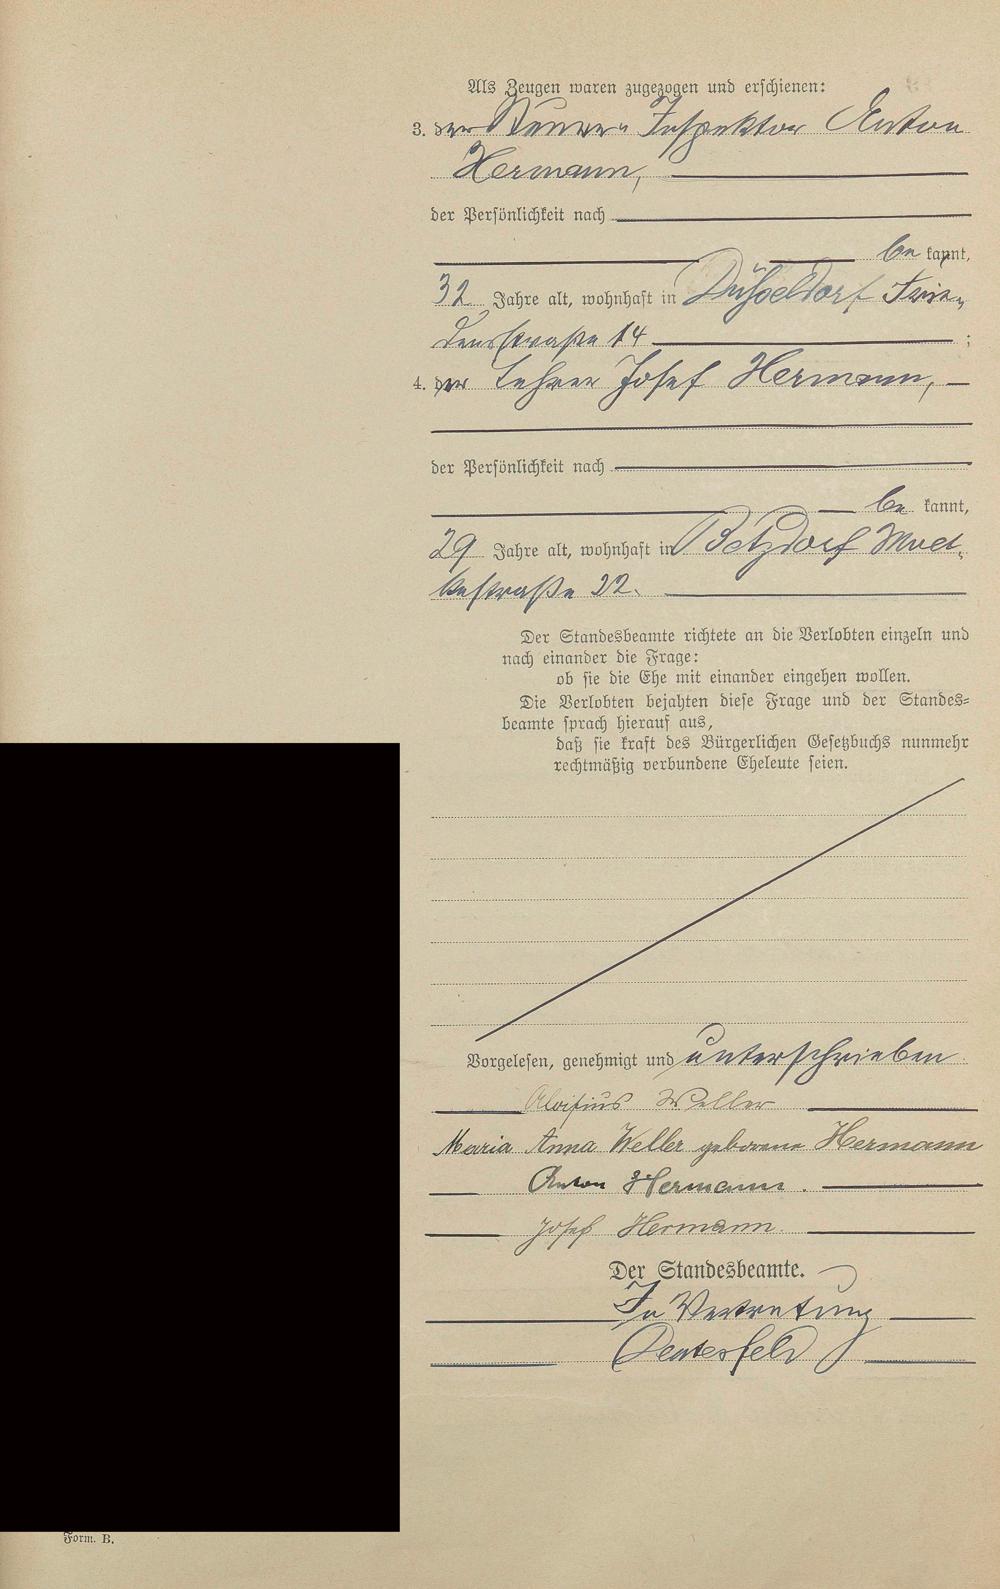 Als Zeugen waren zugezogen und erschienen:
3. der Steuer-Inspektor Anton
Hermann,
der Persönlichkeit nach
be kannt,
32 Jahre alt, wohnhaft in Düsseldorf Frie-
densstraße 14 ;
4. der Lehrer Josef Hermann,
der Persönlichkeit nach
be kannt,
29 Jahre alt, wohnhaft in Betzdorf
straße 22.
Der Standesbeamte richtete an die Verlobten einzeln und
nach einander die Frage:
ob sie die Ehe mit einander eingehen wollen.
Die Verlobten bejahten diese Frage und der Standes=
beamte sprach hierauf aus,
daß sie kraft des Bürgerlichen Gesetzbuchs nunmehr
rechtmäßig verbundene Eheleute seien.
Vorgelesen, genehmigt und unterschrieben
Aloisius Weller
Maria Anna Weller geborene Hermann
Anton Hermann.
Josef Hermann.
Der Standesbeamte.
In Vertretung
Form. B.